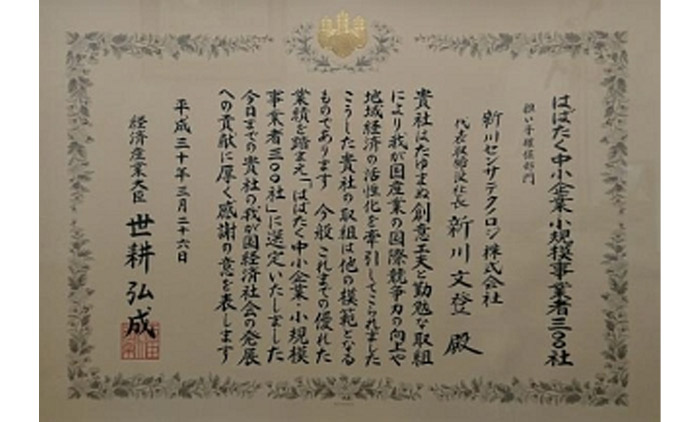 はばたく中小企業・小規模事業者三〇〇社
担い手確保部門
新川センサテクノロジ株式会社
代表取締役社長 新川文登 殿
貴社はたゆまぬ創意工夫と勤勉な取組
により我が国産業の国際競争力の向上や
地域経済の活性化を牽引してこられました
こうした貴社の取組は他の模範となる
ものであります 今般これまでの優れた
業績を踏まえ「はばたく中小企業・小規模
事業者三〇〇社」に選定いたしました
今日までの貴社の我が国経済社会の発展
への貢献に厚く感謝の意を表します
平成三十年三月二十六日
経済産業大臣 世耕弘成